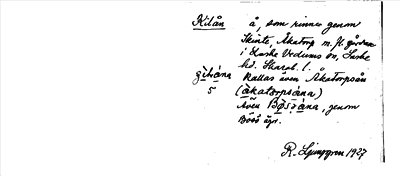 Kilån å, som rinner genom
Skinte, Åkatorp m. fl. gårdar
i Laske Vedums sn, Laske
hd. Skarab. l.
Kallas även Åkatorpsån
(åkatorpsåna)
5
Även Båsåna, genom
Böös ägr.
R. Ljunggren 1927